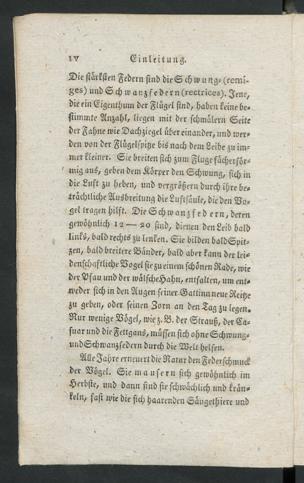 IV Einleitung.
Die stärksten Federn sind die Schwung- (remi-
ges) und Schwanzfedern (rectrices). Jene,
die ein Eigenthum der Flügel sind, haben keine be-
stimmte Anzahl, liegen mit der schmälern Seite
der Fahne wie Dachziegel über einander, und wer-
den von der Flügelspitze bis nach dem Leibe zu im-
mer kleiner. Sie breiten sich zum Fluge fächerför-
mig aus, geben dem Körper den Schwung, sich in
die Luft zu heben, und vergrößern durch ihre be-
trächtliche Ausbreitung die Luftsäule, die den Vo-
gel tragen hilft. Die Schwanzfedern, deren
gewöhnlich 12 — 20 sind, dienen den Leib bald
links, bald rechts zu lenken. Sie bilden bald Spit-
zen, bald breitere Bänder, bald aber kann der lei-
denschaftliche Vogel sie zu einem schönen Rade, wie
der Pfau und der wälsche Hahn, entfalten, um ent-
weder sich in den Augen seiner Gattinn neue Reitze
zu geben, oder seinen Zorn an den Tag zu legen.
Nur wenige Vögel, wie z. B. der Strauß, der Ca-
suar und die Fettgans, müssen sich ohne Schwung-
und Schwanzfedern durch die Welt helfen.
Alle Jahre erneuert die Natur den Federschmuck
der Vögel. Sie mausern sich gewöhnlich im
Herbste, und dann sind sie schwächlich und krän-
keln, fast wie die sich haarenden Säugethiere und